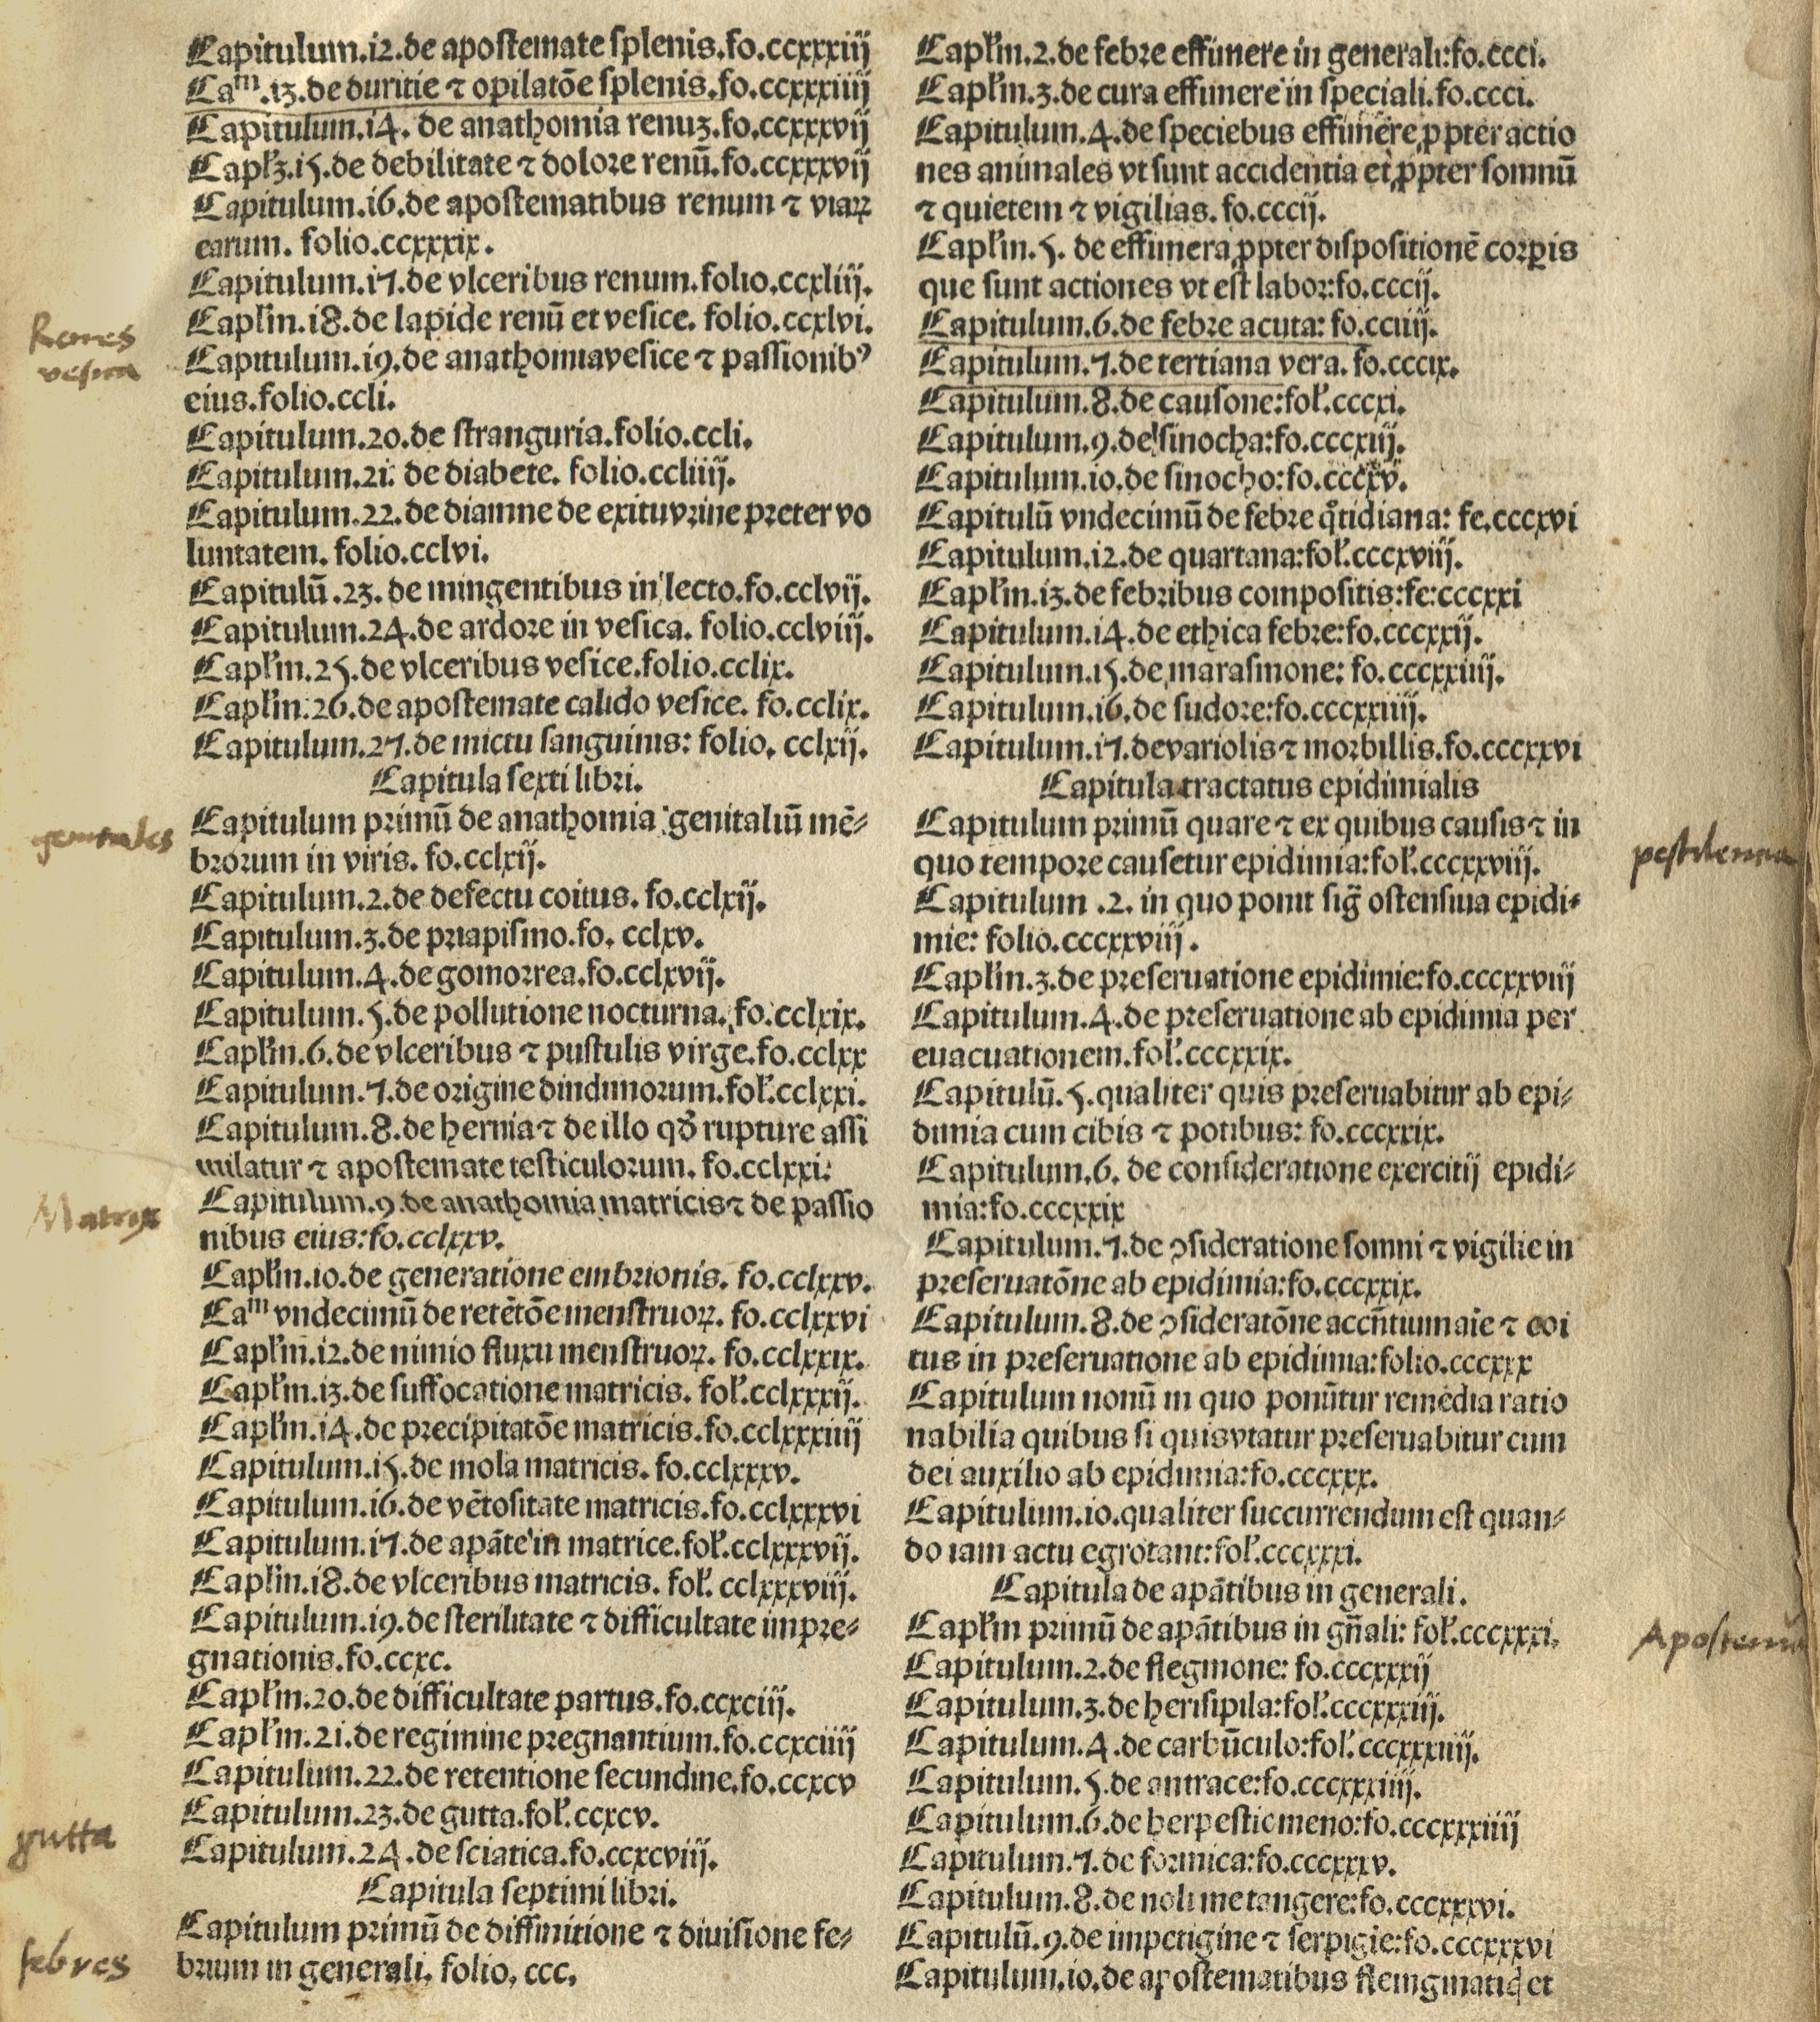 Capitulum.12.de apostemate splenis.fo.ccxxxiij
Caᵐ.13.de duritie ⁊ opilatōe splenis.fo.ccxxxiiij
Capitulum.14. de anathomia renuꝫ.fo.ccxxxvij
Capłꝫ.15.de debilitate ⁊ dolore renū.fo.ccxxxvij
Capitulum.16.de apostematibus renum ⁊ viaꝝ
earum. folio.ccxxxix.
Capitulum.17.de vlceribus renum.folio.ccxliij.
Capłm.18.de lapide renū et vesice. folio.ccxlvi.
Renes
vesica
Capitulum.19.de anathomiavesice ⁊ passionibꝰ
eius.folio.ccli.
Capitulum.20.de stranguria.folio.ccli.
Capitulum.21. de diabete. folio.ccliiij.
Capitulum.22.de diamne de exituvrine preter vo
luntatem. folio.cclvi.
Capitulū.23. de mingentibus in lecto.fo.cclvij.
Capitulum.24.de ardore in vesica. folio.cclviij.
Capłm.25.de vlceribus vesice.folio.cclix.
Capłm.26.de apostemate calido vesice. fo.cclix.
Capitulum.27.de mictu sanguinis: folio. cclxij.
Capitula sexti libri.
genitales
Capitulum primū de anathomia genitaliū mē-
brorum in viris. fo.cclxij.
Capitulum.2.de defectu coitus. fo.cclxij.
Capitulum.3.de priapismo.fo. cclxv.
Capitulum.4.de gomorrea.fo.cclxvij.
Capitulum.5.de pollutione nocturna. fo.cclxix.
Capłm.6.de vlceribus ⁊ pustulis virge.fo.cclxx
Capitulum.7.de origine dindimorum.foł.cclxxi.
Capitulum.8.de hernia ⁊ de illo qđ rupture assi
milatur ⁊ apostemate testiculorum. fo.cclxxi.
Matrix
Capitulum.9.de anathomia matricis ⁊ de passio
nibus eius:fo.cclxxv.
Capłm.10.de generatione embrionis. fo.cclxxv.
Caᵐ vndecimū de retētōe menstruoꝝ. fo.cclxxvi
Capłm.12.de nimio fluxu menstruoꝝ. fo.cclxxix.
Capłm.13.de suffocatione matricis. foł.cclxxxij.
Capłm.14.de precipitatōe matricis.fo.cclxxxiiij
Capitulum.15.de mola matricis. fo.cclxxxv.
Capitulum.16.de vētositate matricis.fo.cclxxxvi
Capitulum.17.de apāte in matrice.foł.cclxxxvij.
Capłm.18.de vlceribus matricis. foł. cclxxxviij.
Capitulum.19.de sterilitate ⁊ difficultate impre-
gnationis.fo.ccxc.
Capłm.20.de difficultate partus.fo.ccxciij.
Capłm.21.de regimine pregnantium.fo.ccxciiij
Capitulum.22.de retentione secundine.fo.ccxcv
gutta
Capitulum.23.de gutta.foł.ccxcv.
Capitulum.24.de sciatica.fo.ccxcviij.
Capitula septimi libri.
febres
Capitulum primū de diffinitione ⁊ diuisione fe-
brium in generali. folio. ccc.
Capłm.2.de febre effimere in generali:fo.ccci.
Capłm.3.de cura effimere in speciali.fo.ccci.
Capitulum.4.de speciebus effimere ꝓpter actio
nes animales vt sunt accidentia et ꝓpter somnū
⁊ quietem ⁊ vigilias. fo.cccij.
Capłm.5. de effimera ꝓpter dispositionē corꝑis
que sunt actiones vt est labor:fo.cccij.
Capitulum.6.de febre acuta: fo.cciiij.
Capitulum.7.de tertiana vera. fo.cccix.
Capitulum.8.de causone:foł.cccxi.
Capitulum.9.de sinocha:fo.cccxiij.
Capitulum.10.de sinocho:fo.cccxv.
Capitulū vndecimū de febre q̄tidiana: fe.cccxvi
Capitulum.12.de quartana:foł.cccxviij.
Capłm.13.de febribus compositis:fe:cccxxi
Capitulum.14.de ethica febre:fo.cccxxij.
Capitulum.15.de marasmone: fo.cccxxiiij.
Capitulum.16.de sudore:fo.cccxxiiij.
Capitulum.17.devariolis ⁊ morbillis.fo.cccxxvi
Capitula tractatus epidimialis
Capitulum primū quare ⁊ ex quibus causis ⁊ in
quo tempore causetur epidimia:foł.cccxxviij.
pestilentia
Capitulum .2. in quo ponit sig̃ ostensiua epidi-
mie: folio.cccxxviij.
Capłm.3.de preseruatione epidimie:fo.cccxxviij
Capitulum.4.de preseruatione ab epidimia per
euacuationem.foł.cccxxix.
Capitulū.5.qualiter quis preseruabitur ab epi-
dimia cum cibis ⁊ potibus: fo.cccxxix.
Capitulum.6. de consideratione exercitij epidi-
mia:fo.cccxxix
Capitulum.7.de ꝯsideratione somni ⁊ vigilie in
preseruatōne ab epidimia:fo.cccxxix.
Capitulum.8.de ꝯsideratōne accn̄tium aīe ⁊ coi
tus in preseruatione ab epidimia:folio.cccxxx
Capitulum nonū in quo ponūtur remedia ratio
nabilia quibus si quisvtatur preseruabitur cum
dei auxilio ab epidimia:fo.cccxxx.
Capitulum.10.qualiter succurrendum est quan-
do iam actu egrotant:foł.cccxxxi.
Capitula de apātibus in generali.
Capłm primū de apātibus in gn̄ali: foł.cccxxxi.
Capitulum.2.de flegmone: fo.cccxxxij
Capitulum.3.de herisipila:foł.cccxxxiij.
Capitulum.4.de carbūculo:foł.cccxxxiiij.
Capitulum.5.de antrace:fo.cccxxxiiij.
Capitulum.6.de herpestiomeno:fo.cccxxxiiij
Capitulum.7.de formica:fo.cccxxxv.
Capitulum.8.de noli me tangere:fo.cccxxxvi.
Capitulū.9.de impetigine ⁊ serpigie:fo.cccxxxvi
Capitulum.10.de apostematibus flemgmaticꝭ et